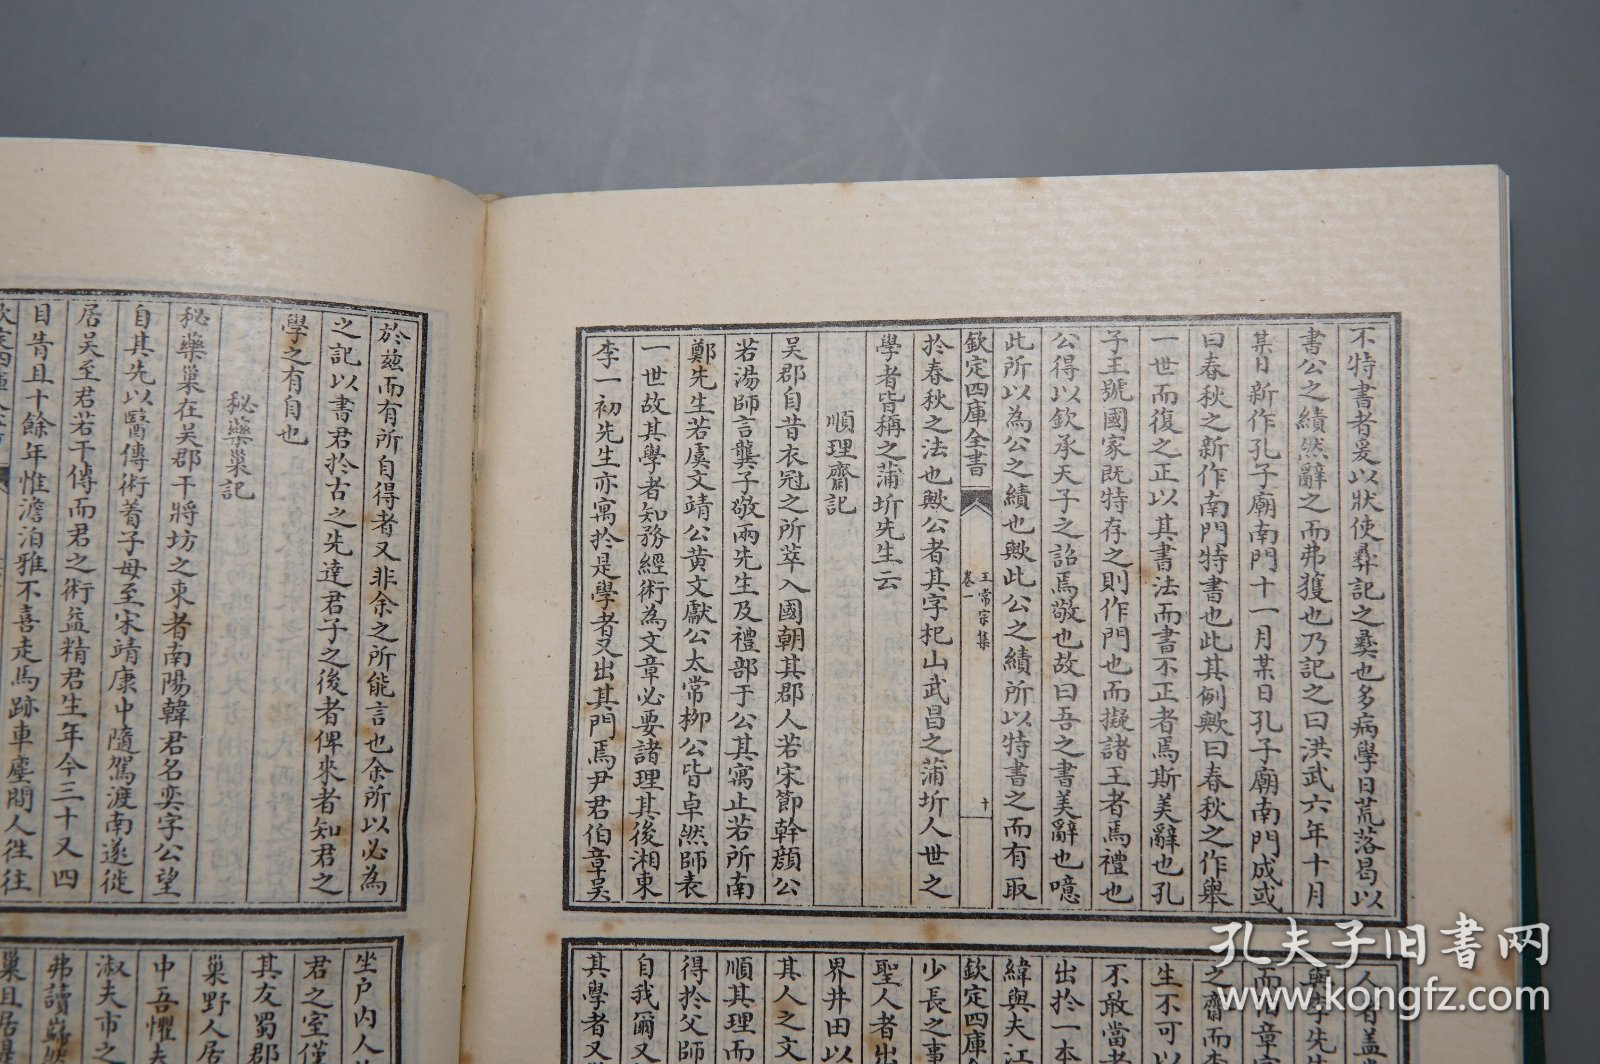 不特書者爰以狀使彛記之彛也多病學日荒落曷以
書公之績然辭之而弗獲也乃記之曰洪武六年十月
某日新作孔子廟南門十一月某日孔子廟南門成或
曰春秋之新作南門特書也此其例歟曰春秋之作舉
一世而復之正以其書法而書不正者焉斯美辭也孔
子王號國家既特存之則作門也而擬諸王者焉禮也
公得以欽承天子之詔焉敬也故曰吾之書美辭也噫
此所以為公之績也歟此公之績所以特書之而有取
欽定四庫全書
王常宗集
卷一
十
於春秋之法也歟公者其字杞山武昌之蒲圻人世之
學者皆稱之蒲圻先生云
順理齋記
吳郡自昔衣冠之所萃入國朝其郡人若宋節幹顔公
若湯師言龔子敬兩先生及禮部于公其寓止若所南
鄭先生若虞文靖公黄文獻公太常栁公皆卓然師表
一世故其學者知務經術為文章必要諸理其後湘東
李一初先生亦寓於是學者又出其門焉尹君伯章吳
人有蓋
與李先生
而元章字
之齋而李
生不可以
不敢當者
出於一本
緯與夫江
欽定四庫全
少長之事
聖人者出
界井田以
其人之文
順其理而
得於父師
自我爾又
其學者又
於兹而有所自得者又非余之所能言也余所以必為
之記以書君於古之先達君子之後者俾來者知君之
學之有自也
秘藥巢記
秘藥巢在吴郡干將坊之東者南陽韓君名奕字公望
自其先以醫傳術着子母至宋靖康中隨駕渡南遂徙
居吴至君若干傳而君之術益精君生年今三十又四
目眚且十餘年惟澹泊雅不喜走馬跡車塵間人徃徃
欽定四庫全書
坐户内人
君之室僅
其友蜀郡
巢野人居
中吾懼夫
淑夫市之
弗讀
巢且居
孔夫子旧书网
www.kongfz.com